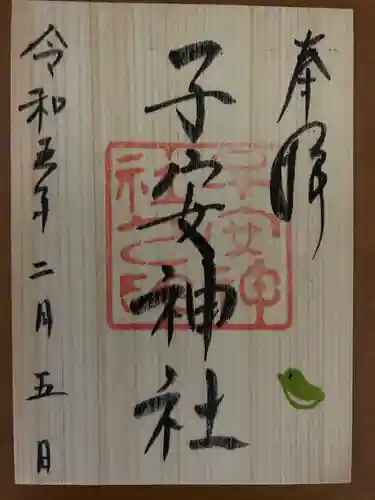 奉拝
子安神社
子安神
社之印
令和五年二月五日